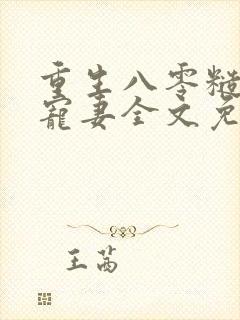 重生八零糙
宠妻全文免
王茜